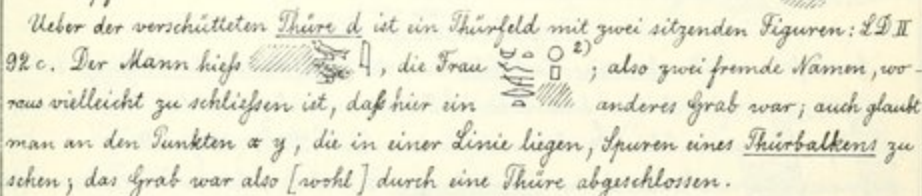 Ueber der verschütteten Thüre d ist ein Thürfeld mit zwei sitzenden Figuren: LD II
92 c. Der Mann hiefs , die Frau 2) ; also zwei fremde Namen, wo-
raus vielleicht zu schliefsen ist, dafs hier ein anderes Grab war; auch glaubt
man an den Punkten x y, die in einer Linie liegen, Spuren eines Thürbalkens zu
sehen; das Grab war also [wohl] durch eine Thüre abgeschlossen.